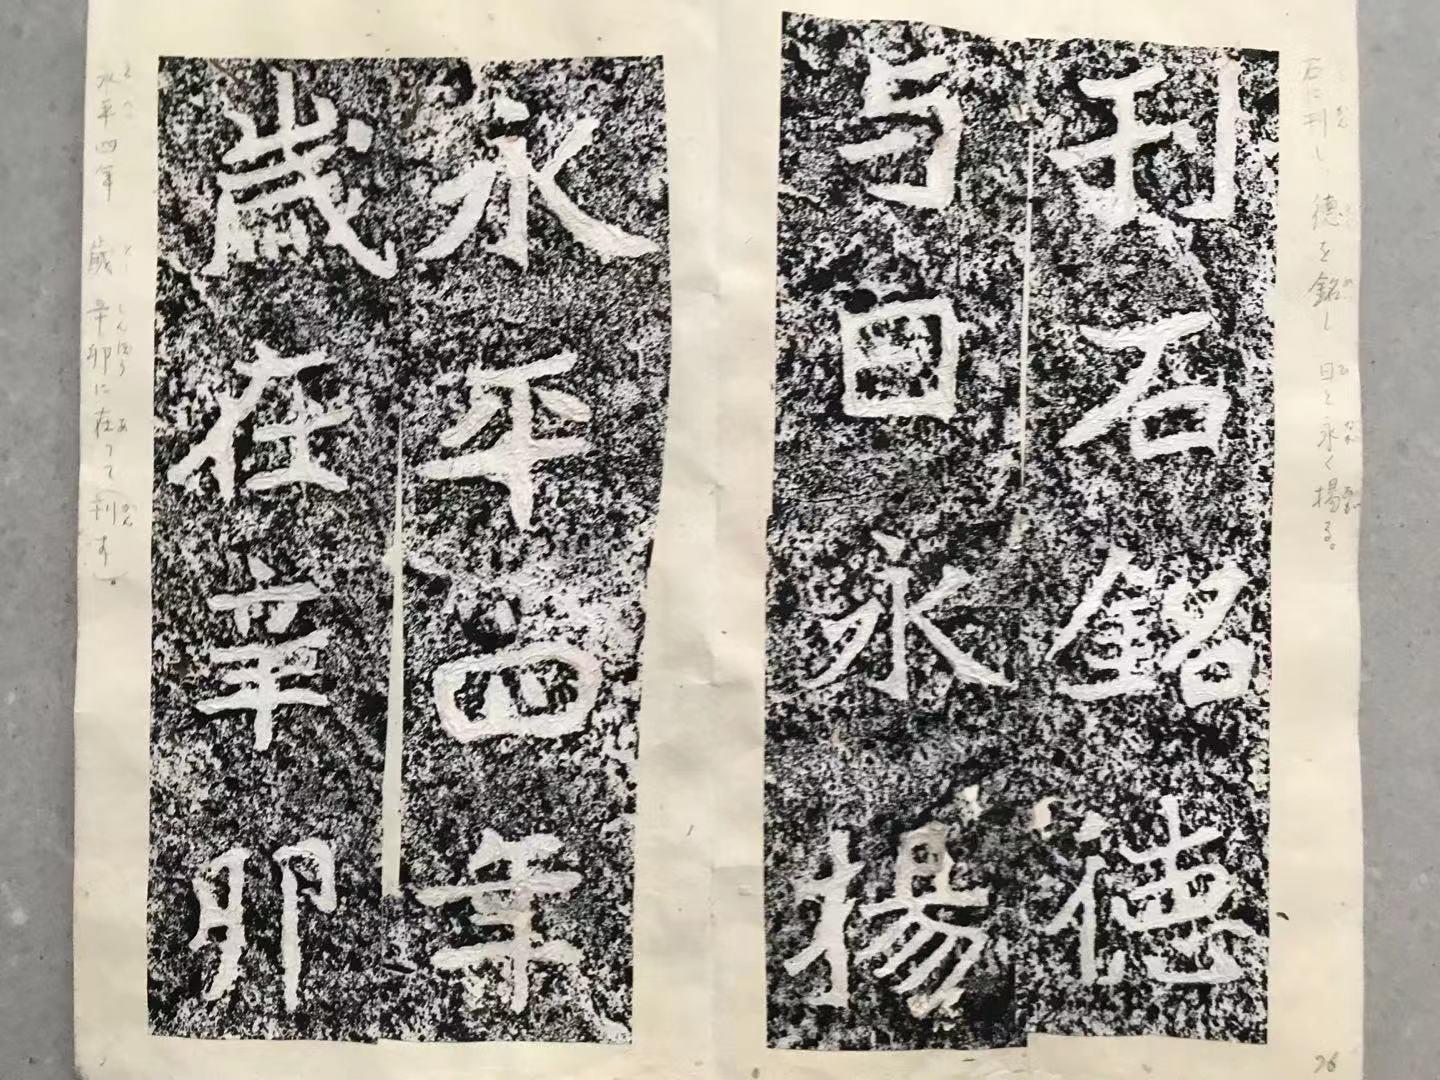 石に刊し 徳を銘し 日と永く揚る。
刊石銘德
与日永揚
永平四年
歳在辛卯
永平四年 歳 辛卯に在って(刊す)。
26